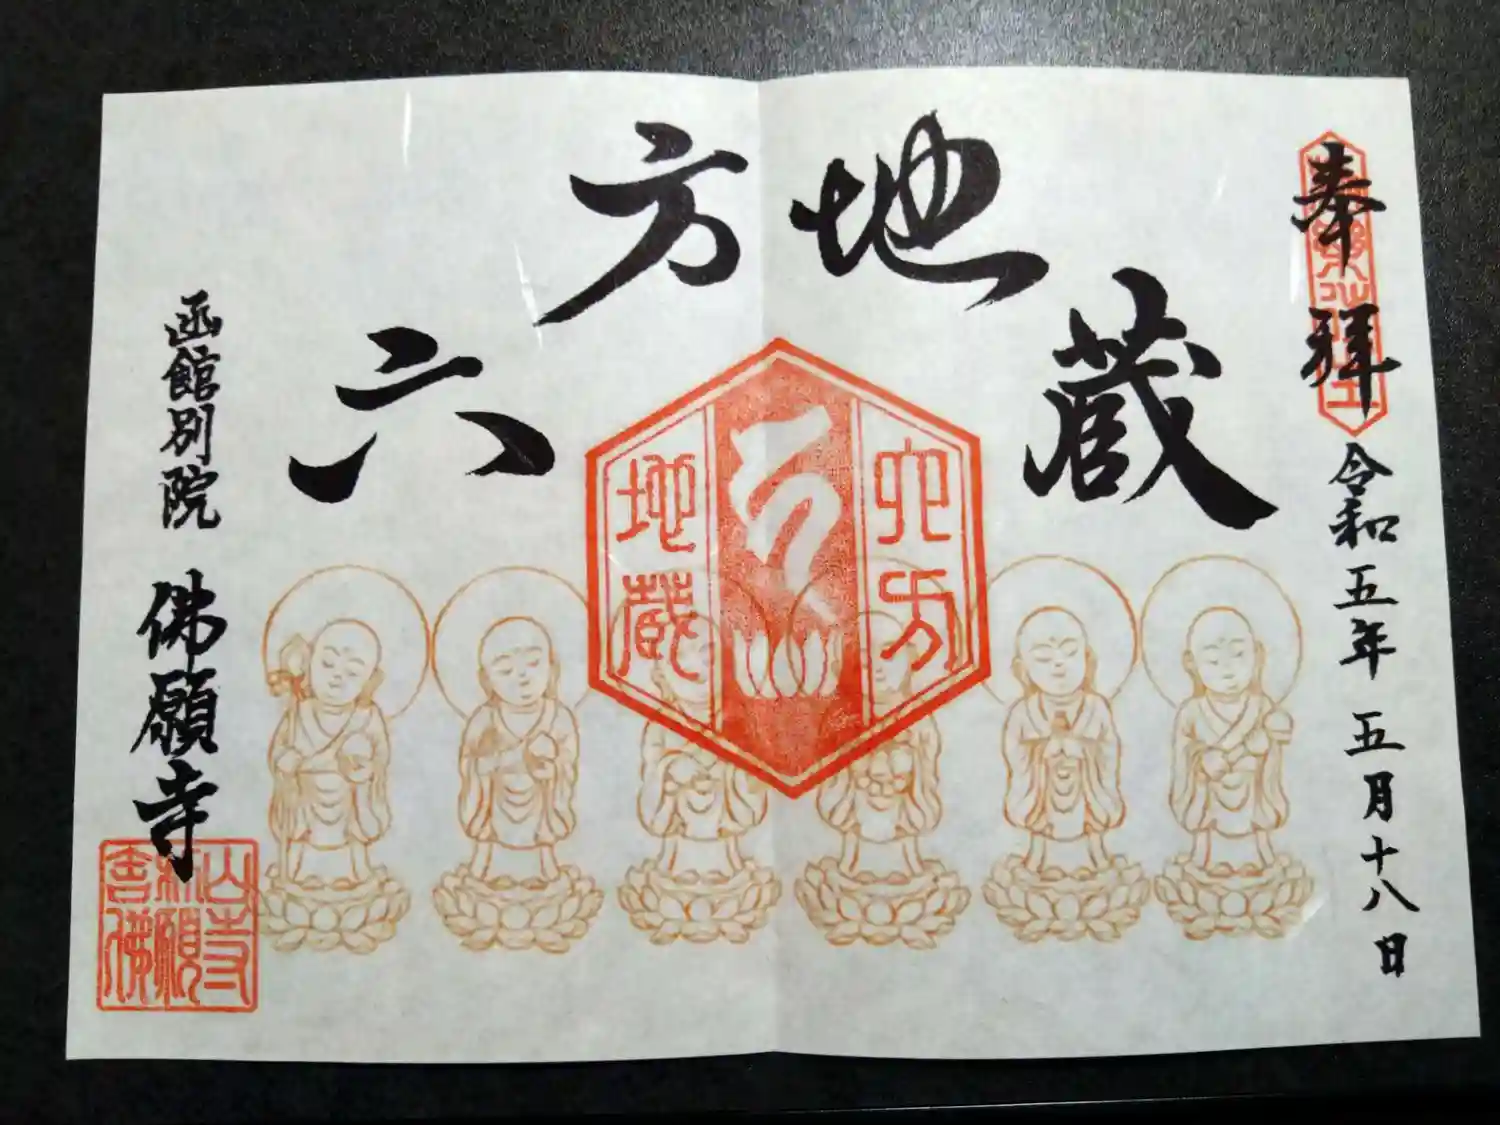 奉拝
令和五年五月十八日
六方地蔵
六方
地蔵
函館別院
佛願寺